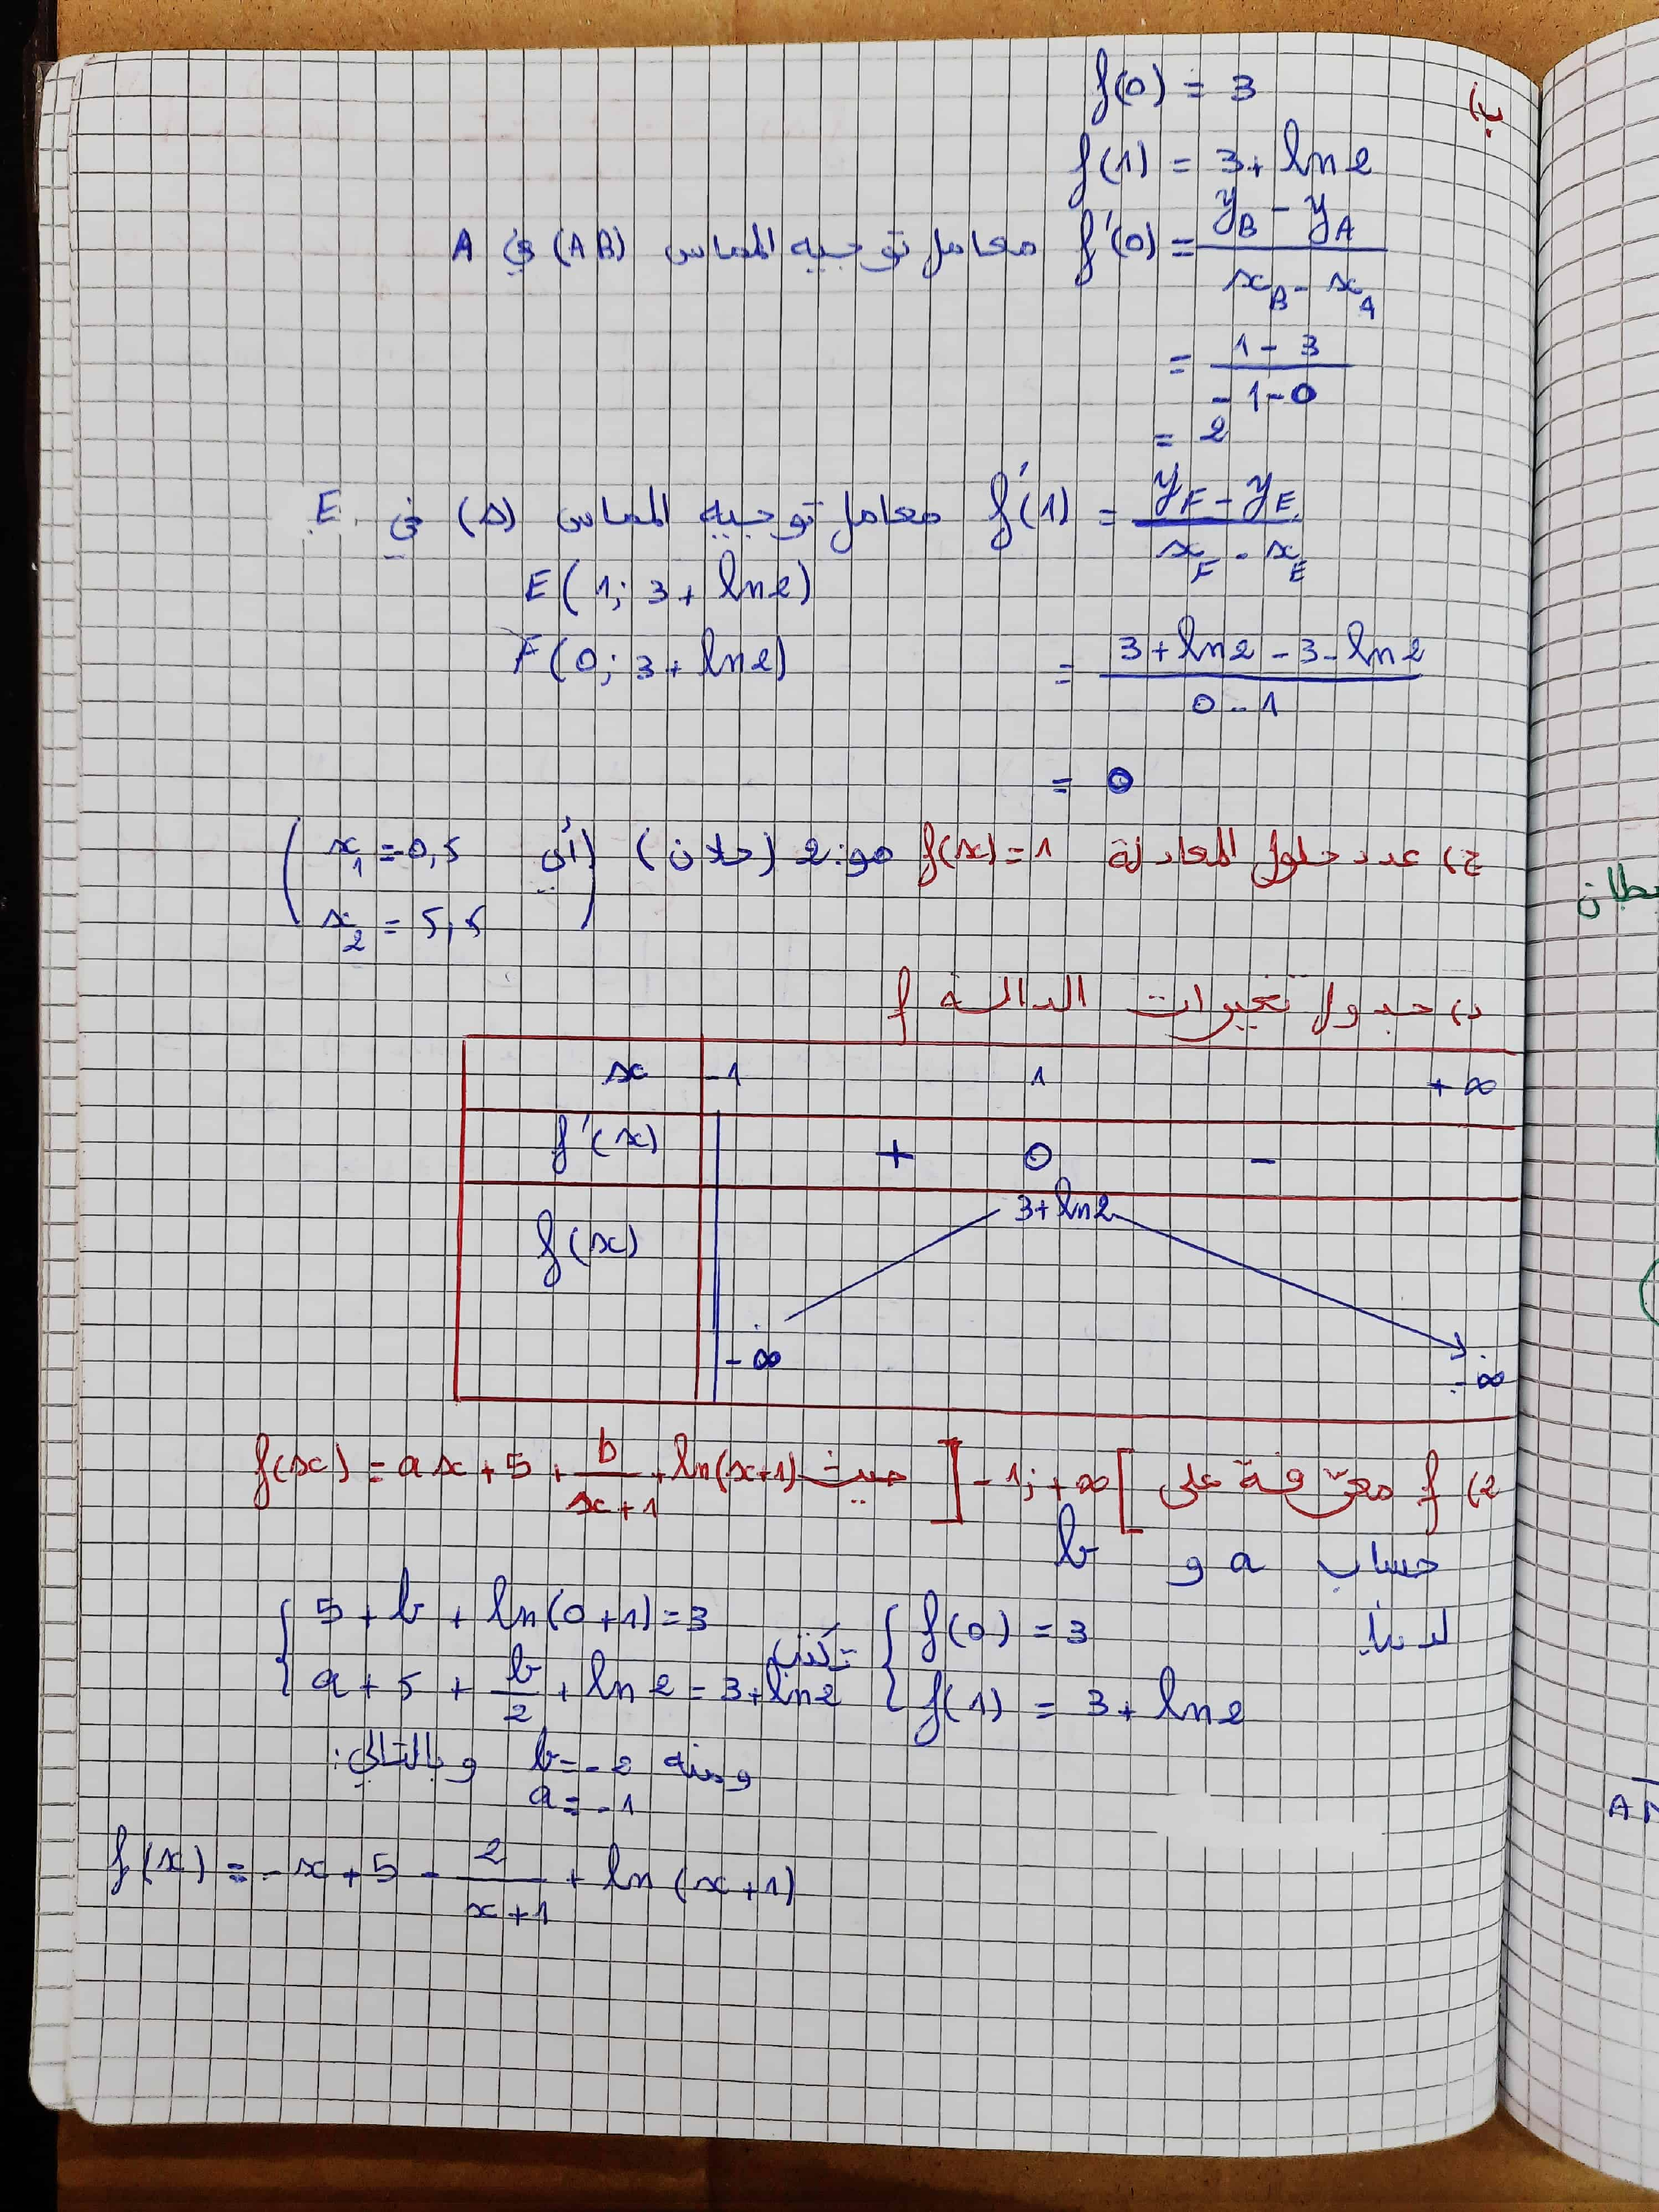 ب) f(0) = 3
f(1) = 3 + ln2
f'(0) = (y_B - y_A)/(x_B - x_A) معامل توجيه المماس (AB) في A
= (1 - 3)/(-1 - 0)
= 2
f'(1) = (y_F - y_E)/(x_F - x_E) معامل توجيه المماس (Δ) في E
E(1; 3 + ln2)
F(0; 3 + ln2)
= (3 + ln2 - 3 - ln2)/(0 - 1)
= 0
ج) عدد حلول المعادلة f(x) = 1 هو: 2 (حلان) (أي x_1 = -0,5
x_2 = 5,5)
د) جدول تغيرات الدالة f
x -1 1 +∞
f'(x) + 0 -
f(x) 3+ln2
-∞ -∞
2) f معرّفة على ]-1; +∞[ حيث f(x) = ax + 5 + b/(x+1) + ln(x+1)
حساب a و b
لدينا { f(0) = 3 تكافئ { 5 + b + ln(0+1) = 3
f(1) = 3 + ln2 a + 5 + b/2 + ln2 = 3 + ln2
ومنه b = -2 وبالتالي:
a = -1
f(x) = -x + 5 - 2/(x+1) + ln(x+1)